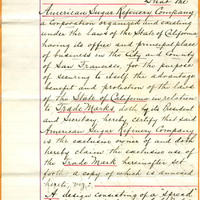 That the
American Sugar Refinery Company,
a corporation organized and existing
under the laws of the State of California
having its office and principal place
of business in the City and County
of San Francisco, for the purpose
of securing to itself the advantage
benefit and protection of the laws
of the State of California in relation
to Trade Marks doth by its President
and Secretary hereby certify that said
American Sugar Refinery Company
is the exclusive owner of and doth
hereby claim the exclusive use of
the Trade Mark hereinafter set
forth a copy of which is annexed
hereto, viz:
A design consisting of a "spread